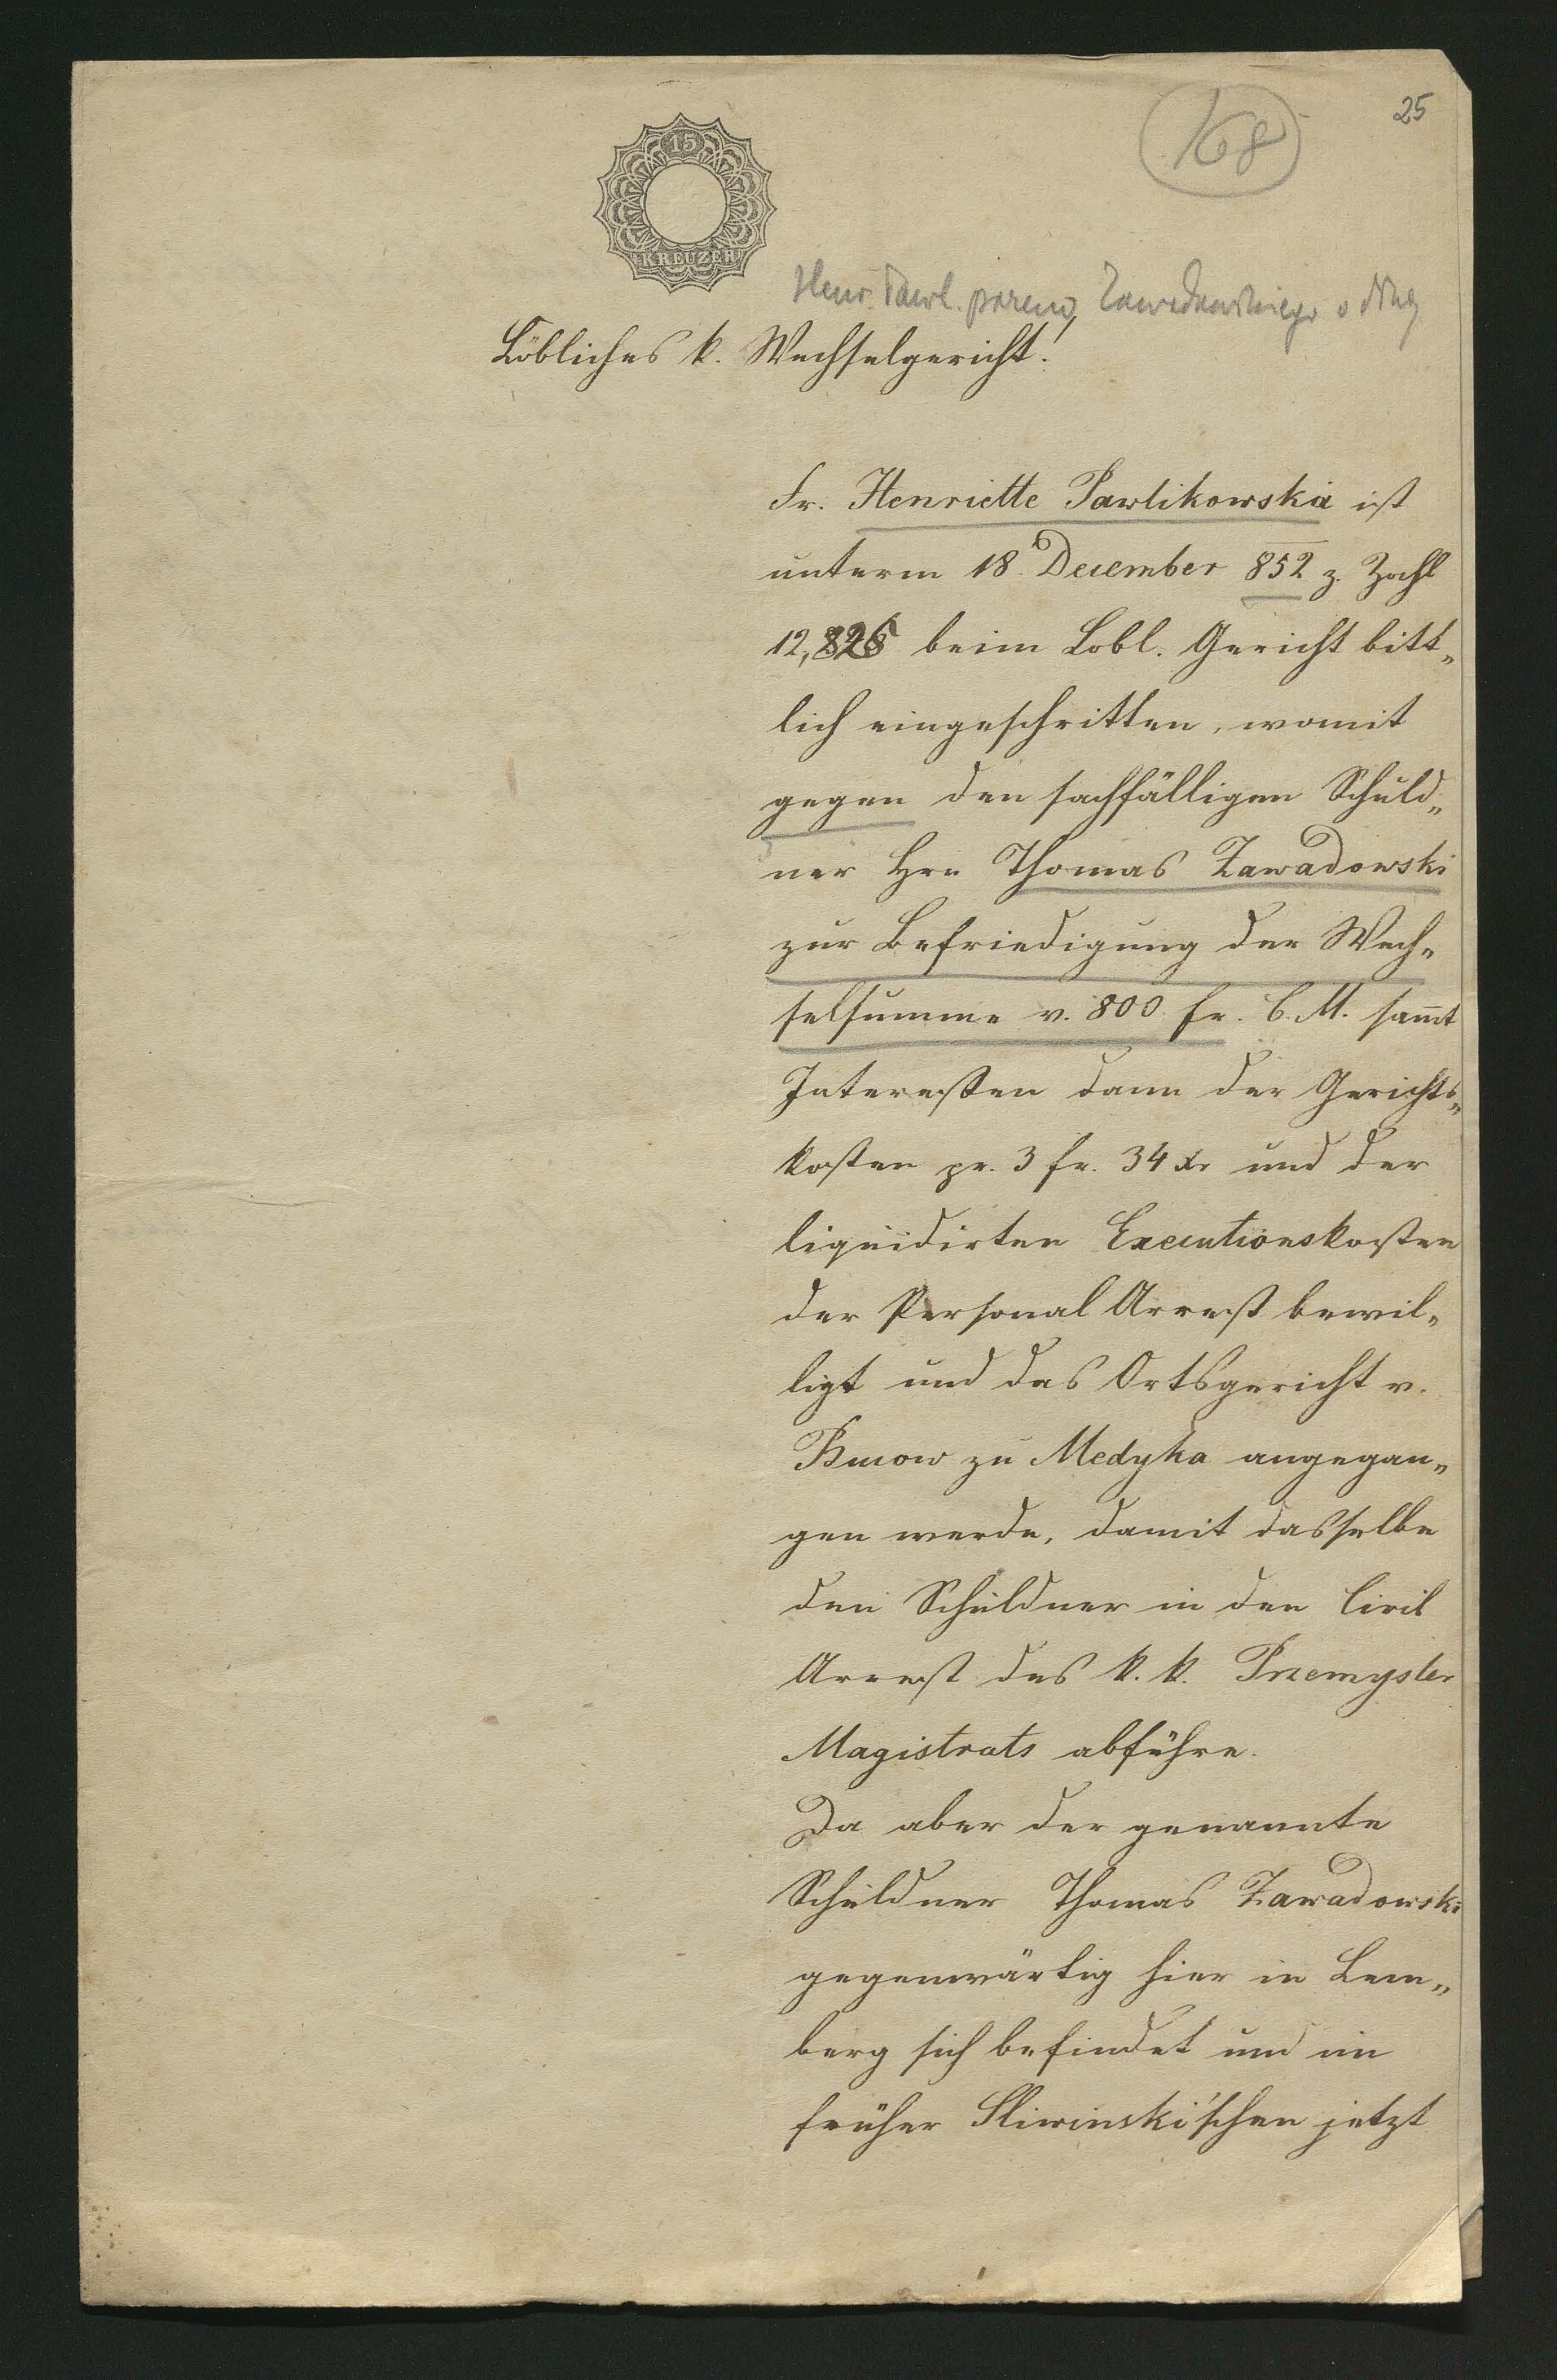 25
168
15
KREUZER
Henr. Pawl. przeciw Zawadowskiego o dług
Löbliches k. Wechselgericht!
Fr. Henriette Pawlikowska ist
unterm 18 December 852 z. Zahl
12,826 beim Lobl. Gericht bitt„
lich eingeschritten, womit
gegen den sachfälligen Schuld„
ner Hrn Thomas Zawadowski
zur Befriedigung der Wech„
selsumme v. 800 fr. C. M. sam̅t
Interessen dann der Gerichts„
kosten pr. 3 fr. 34 xr und der
liquidirten Executionskosten
der Personal Arrest bewil„
ligt und das Ortsgericht v.
zu Medyka angegan„
gen werde, damit dasselbe
den Schuldner in den Civil
Arrest des k. k. Przemysler
Magistrats abführe.
Da aber der genannte
Schuldner Thomas Zawadowski
gegenwärtig hier in Lem„
berg sich befindet und im
früher Sliwinski'schen jetzt